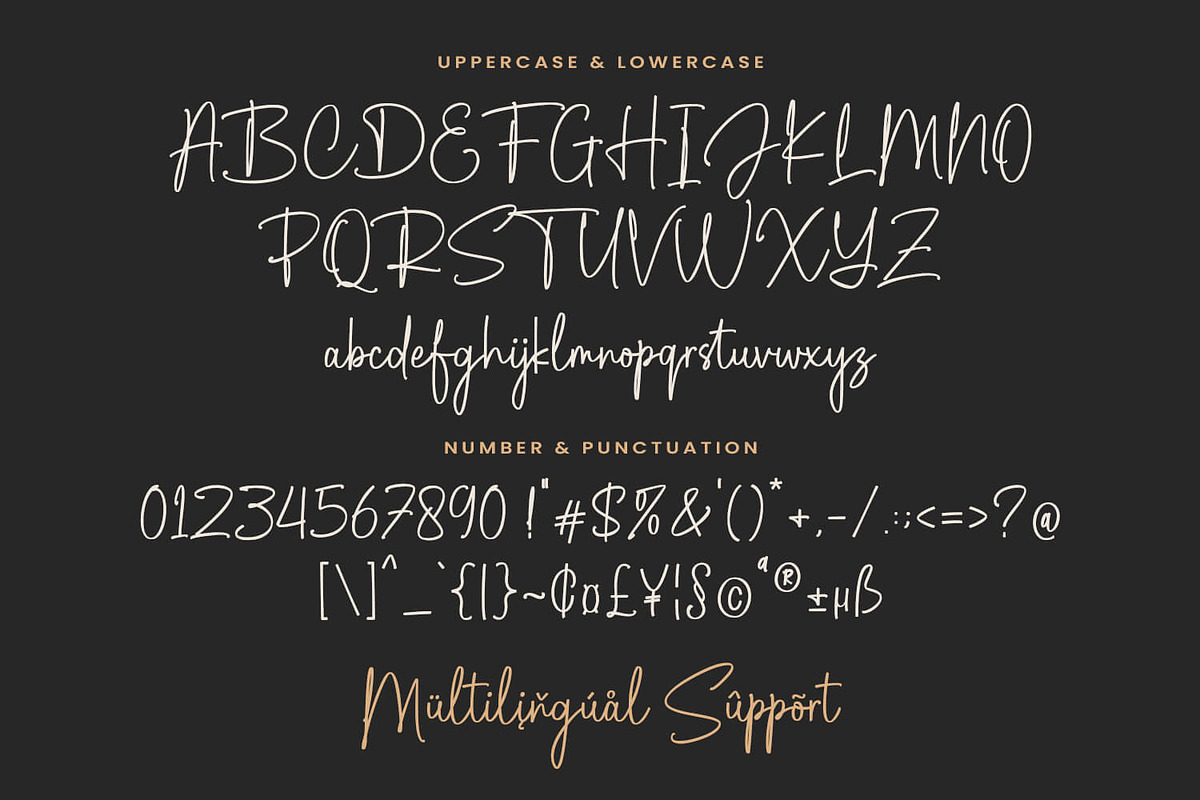 UPPERCASE & LOWERCASE
ABCDEFGHIJKLMNO
PQRSTUVWXYZ
abcdefghijklmnopqrstuvwxyz
NUMBER & PUNCTUATION
01234567890 !"#$%&'()*+,-/.:;<=>?@
[\]^_`{|}~¢¤£¥¦§©ª®±µß
Mültilįňgúål Sûppõrt